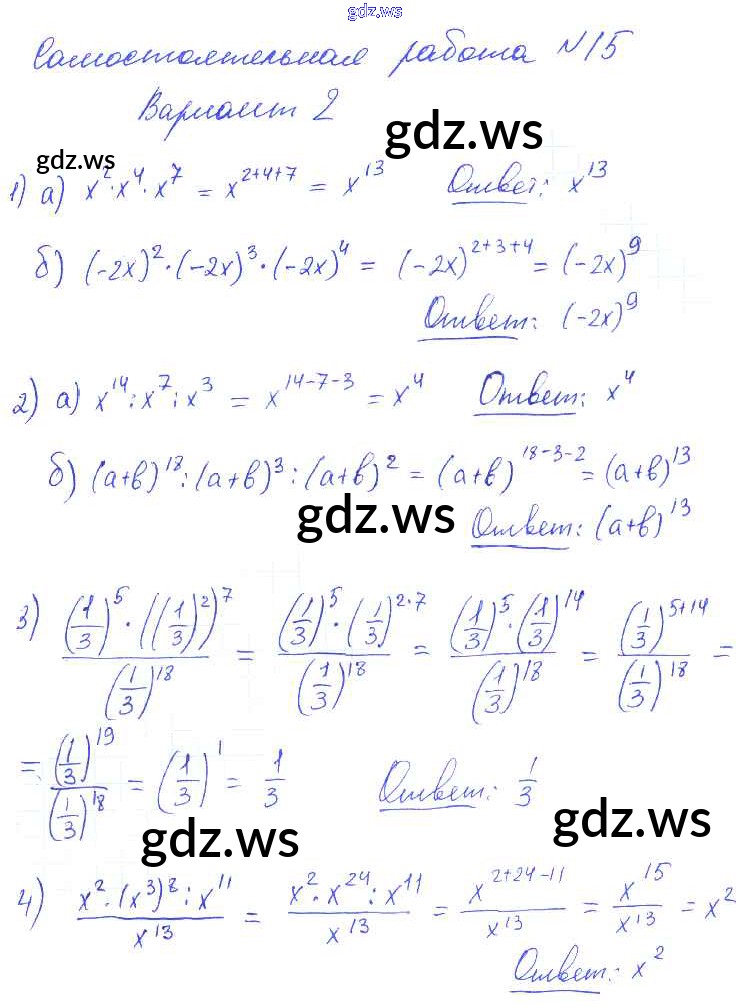 gdz.ws
Самостоятельная работа №15
Вариант 2
gdz.ws
gdz.ws
1) а) x²·x⁴·x⁷ = x²⁺⁴⁺⁷ = x¹³ Ответ: x¹³
б) (-2x)²·(-2x)³·(-2x)⁴ = (-2x)²⁺³⁺⁴ = (-2x)⁹
Ответ: (-2x)⁹
2) а) x¹⁴:x⁷:x³ = x¹⁴⁻⁷⁻³ = x⁴ Ответ: x⁴
б) (a+b)¹⁸:(a+b)³:(a+b)² = (a+b)¹⁸⁻³⁻² = (a+b)¹³
gdz.ws
Ответ: (a+b)¹³
3) (1/3)⁵·((1/3)²)⁷/(1/3)¹⁸ = (1/3)⁵·(1/3)²·⁷/(1/3)¹⁸ = (1/3)⁵·(1/3)¹⁴/(1/3)¹⁸ = (1/3)⁵⁺¹⁴/(1/3)¹⁸ =
= (1/3)¹⁹/(1/3)¹⁸ = (1/3)¹ = 1/3 Ответ: 1/3
gdz.ws
gdz.ws
4) x²·(x³)⁸:x¹¹/x¹³ = x²·x²⁴:x¹¹/x¹³ = x²⁺²⁴⁻¹¹/x¹³ = x¹⁵/x¹³ = x²
Ответ: x²